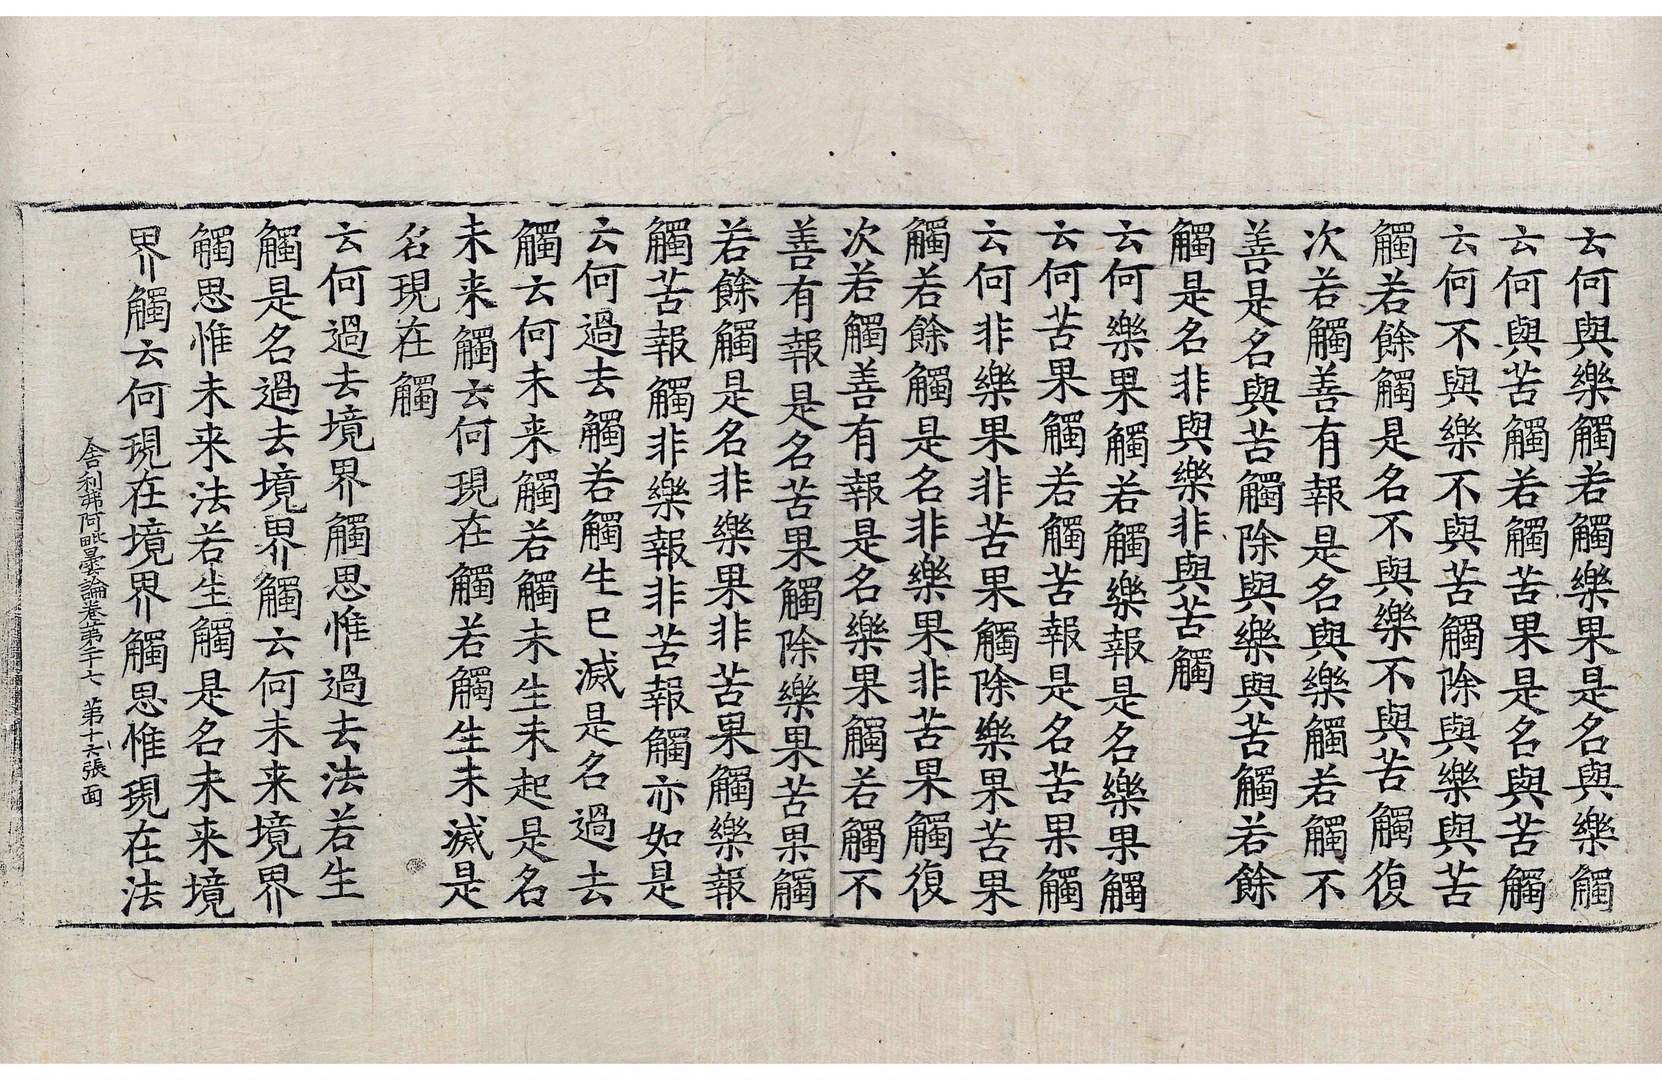 云何與樂觸若觸樂果是名與樂觸
云何與苦觸若觸苦果是名與苦觸
云何不與樂不與苦觸除與樂與苦
觸若餘觸是名不與樂不與苦觸復
次若觸善有報是名與樂觸若觸不
善是名與苦觸除與樂與苦觸若餘
觸是名非與樂非與苦觸
云何樂果觸若觸樂報是名樂果觸
云何苦果觸若觸苦報是名苦果觸
云何非樂果非苦果觸除樂果苦果
觸若餘觸是名非樂果非苦果觸復
次若觸善有報是名樂果觸若觸不
善有報是名苦果觸除樂果苦果觸
若餘觸是名非樂果非苦果觸樂報
觸苦報觸非樂報非苦報觸亦如是
云何過去觸若觸生已滅是名過去
觸云何未来觸若觸未生未起是名
未来觸云何現在觸若觸生未滅是
名現在觸
云何過去境界觸思惟過去法若生
觸是名過去境界觸云何未来境界
觸思惟未来法若生觸是名未来境
界觸云何現在境界觸思惟現在法
舍利弗阿毗曇論卷第二十七 第十六張 面